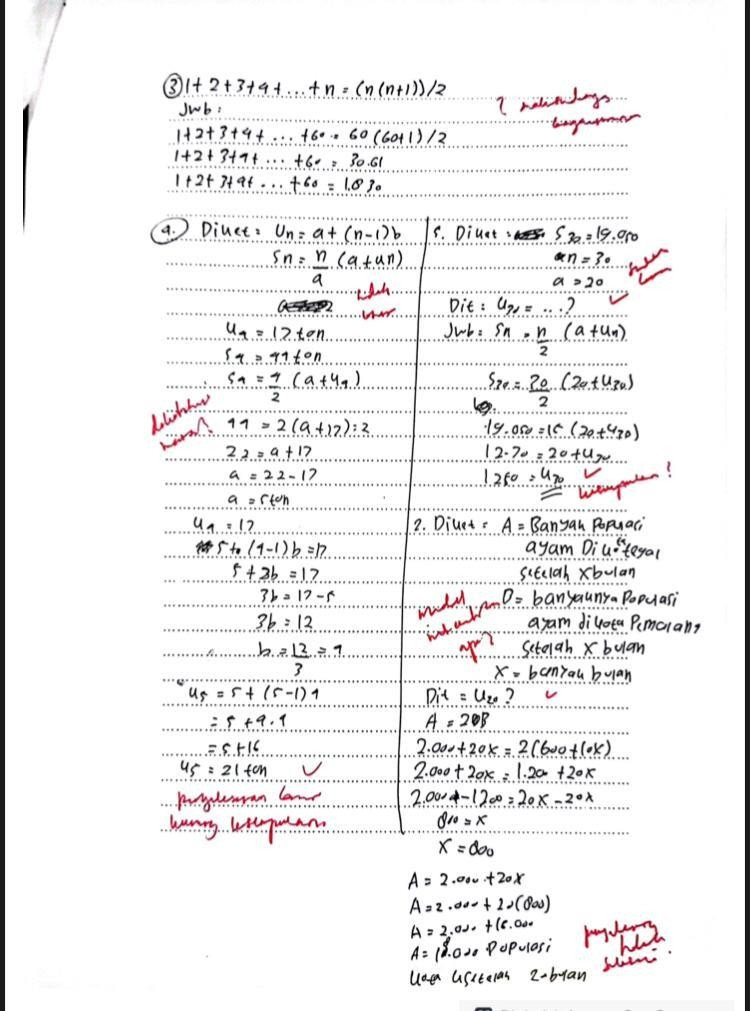 ③ 1+2+3+4+...+n = (n(n+1))/2
Jwb:
1+2+3+4+ ... +60 = 60 (60+1)/2
1+2+3+4+ ... +60 = 30.61
1+2+3+4+ ... +60 = 1.830
4. Diket: Un = a + (n-1)b
Sn = n/a (a+un)
U4 = 17 ton
S4 = 44 ton
S4 = 4/2 (a+U4)
44 = 2(a+17):2
22 = a+17
a = 22-17
a = 5 ton
U4 = 17
5+(4-1)b = 17
5+3b = 17
3b = 17-5
3b = 12
b = 12/3 = 4
U5 = 5+(5-1)4
= 5+4.4
= 5+16
U5 = 21 ton
kurang kesimpulan
5. Diket: S30 = 19.050
n = 30
a = 20
Dit: U30 = ...?
Jwb: Sn = n/2 (a+Un)
S30 = 30/2 (20+U30)
19.050 = 15 (20+U30)
12.70 = 20+U30
1250 = U30
kesimpulan?
2. Diket: A = Banyak Populasi
ayam Di kota tegal
setelah x bulan
D = banyaknya Populasi
ayam di kota Pemalang
Setelah x bulan
X = banyak bulan
model
apa?
Dit = U20?
A = 20B
2.000+20x = 2(600+10x)
2.000+20x = 1.200+20x
2.000-1200 = 20x-20x
800 = x
X = 800
A = 2.000+20x
A = 2.000+20(800)
A = 2.000+16.000
A = 18.000 Populasi
setelah 20 bulan